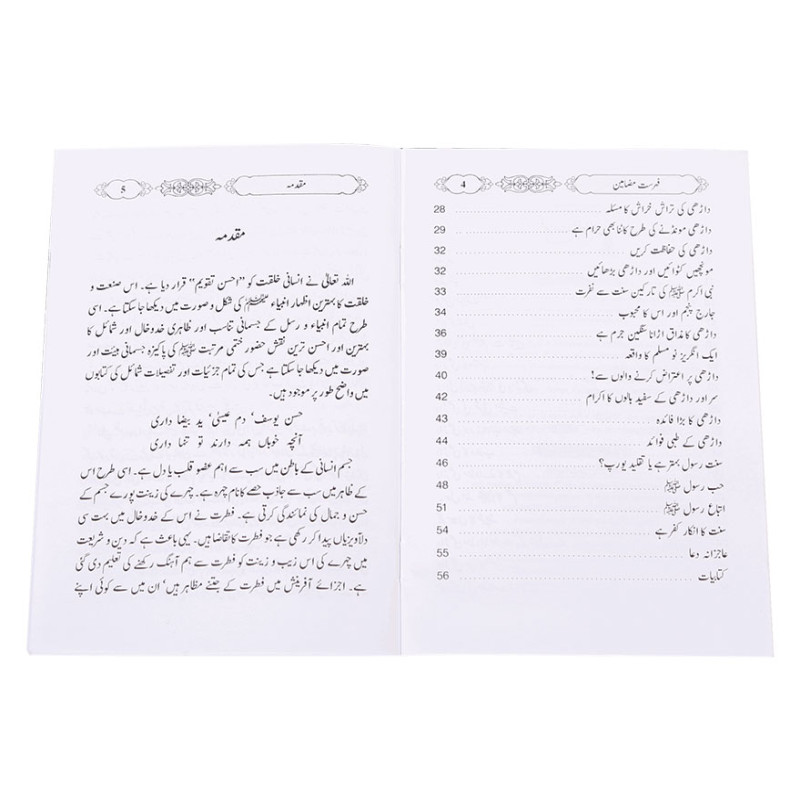 فہرست مضامین
4
داڑھی کی تراش خراش کا مسئلہ 28
داڑھی مونڈنے کی طرح کاٹنا بھی حرام ہے 29
داڑھی کی حفاظت کریں 32
مونچھیں کٹوائیں اور داڑھی بڑھائیں 32
نبی اکرم ﷺ کی تارکین سنت سے نفرت 33
جارج پنجم اور اس کا محبوب 34
داڑھی کا مذاق اڑانا سنگین جرم ہے 36
ایک انگریز نو مسلم کا واقعہ 39
داڑھی پر اعتراض کرنے والوں سے! 40
سر اور داڑھی کے سفید بالوں کا اکرام 42
داڑھی کا بڑا فائدہ 43
داڑھی کے طبی فوائد 44
سنت رسول بہتر ہے یا تقلید یورپ؟ 46
حب رسول ﷺ 48
اتباع رسول ﷺ 51
سنت کا انکار کفر ہے 54
عاجزانہ دعا 55
کتابیات 56
مقدمہ
5
مقدمہ
اللہ تعالیٰ نے انسانی خلقت کو ”احسن تقویم“ قرار دیا ہے۔ اس صنعت و
خلقت کا بہترین اظہار انبیاء کی شکل و صورت میں دیکھا جا سکتا ہے۔ اسی
طرح تمام انبیاء و رسل کے جسمانی تناسب اور ظاہری خدوخال اور شمائل کا
بہترین اور احسن ترین نقش حضور ختمی مرتبت ﷺ کی پاکیزہ جسمانی ہیئت اور
صورت میں دیکھا جا سکتا ہے جس کی تمام جزئیات اور تفصیلات شمائل کی کتابوں
میں واضح طور پر موجود ہیں۔
حسن یوسف‘ دم عیسیٰ‘ ید بیضا داری
آنچہ خوباں ہمہ دارند تو تنہا داری
جسم انسانی کے باطن میں سب سے اہم عضو قلب یا دل ہے۔ اسی طرح اس
کے ظاہر میں سب سے جاذب حصے کا نام چہرہ ہے۔ چہرے کی زینت پورے جسم کے
حسن و جمال کی نمائندگی کرتی ہے۔ فطرت نے اس کے خدوخال میں بہت سی
دلآویزیاں پیدا کر رکھی ہے جو فطرت کا تقاضا ہیں۔ یہی باعث ہے کہ دین و شریعت
میں چہرے کی اس زیب و زینت کو فطرت سے ہم آہنگ رکھنے کی تعلیم دی گئی
ہے۔ اجزائے آفرینش میں فطرت کے جتنے مظاہر ہیں‘ ان میں سے کوئی اپنے